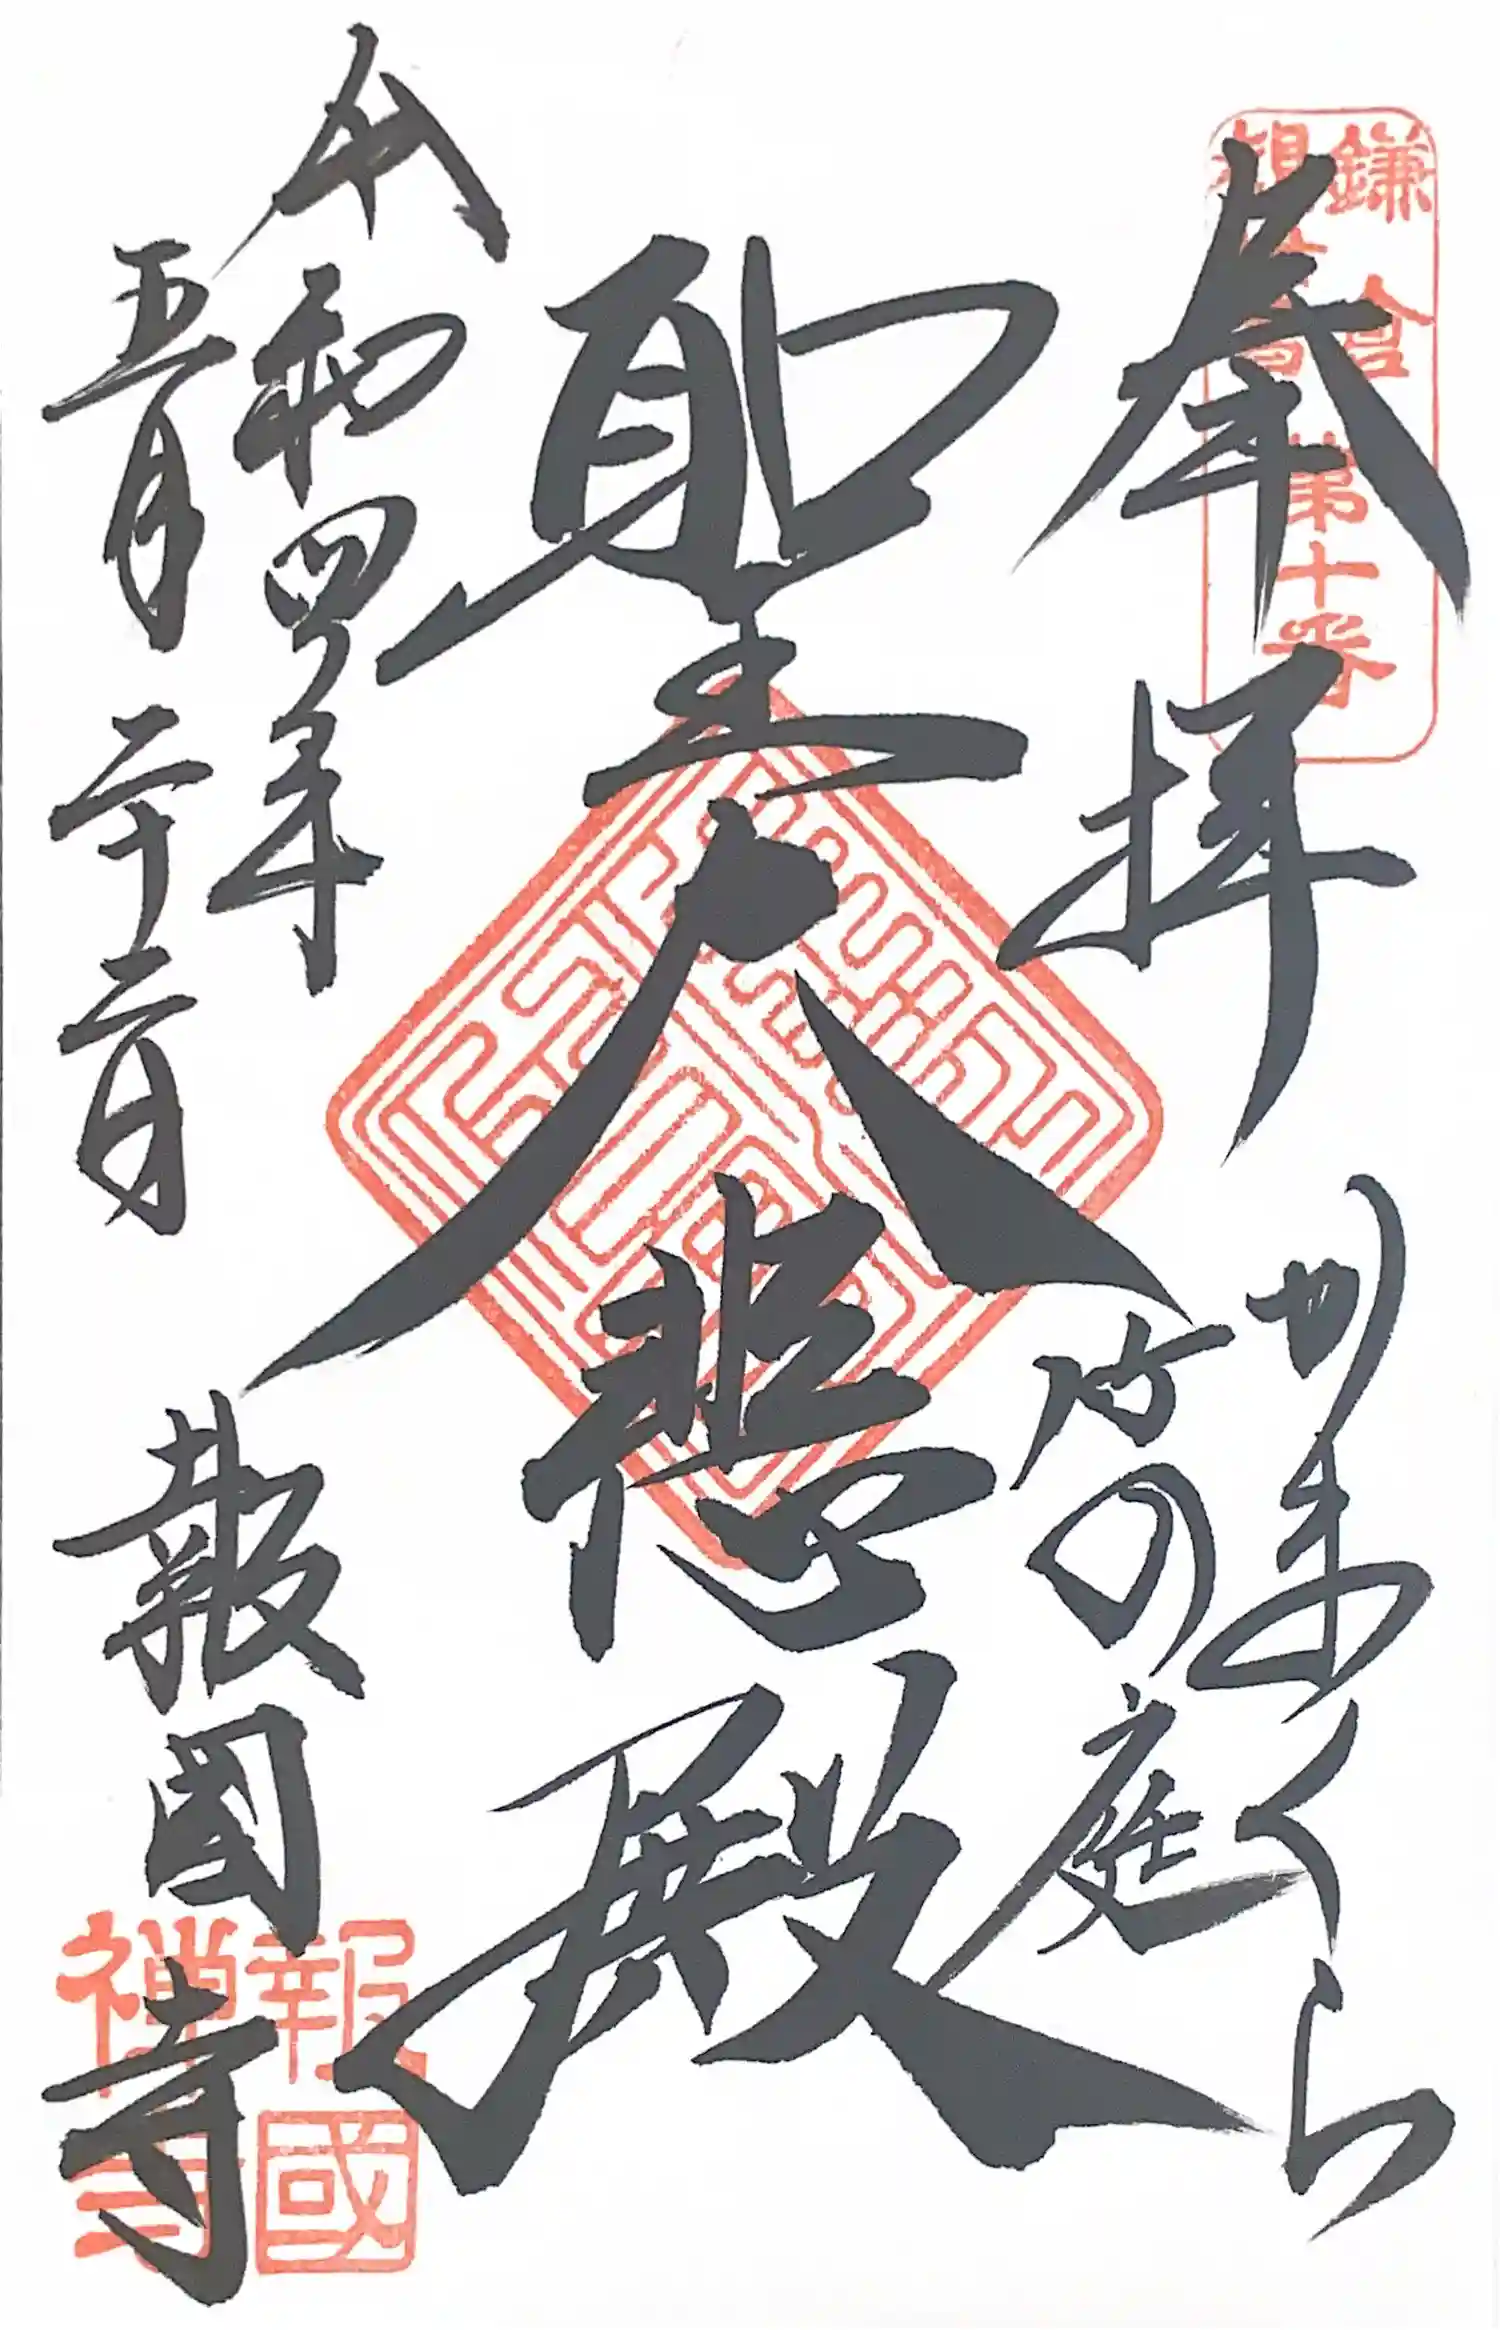 鎌倉
観世音
第十番
奉拝
かまくら
竹の庭
聖大悲殿
令和四年
五月二十二日
報國寺
報國
禅寺